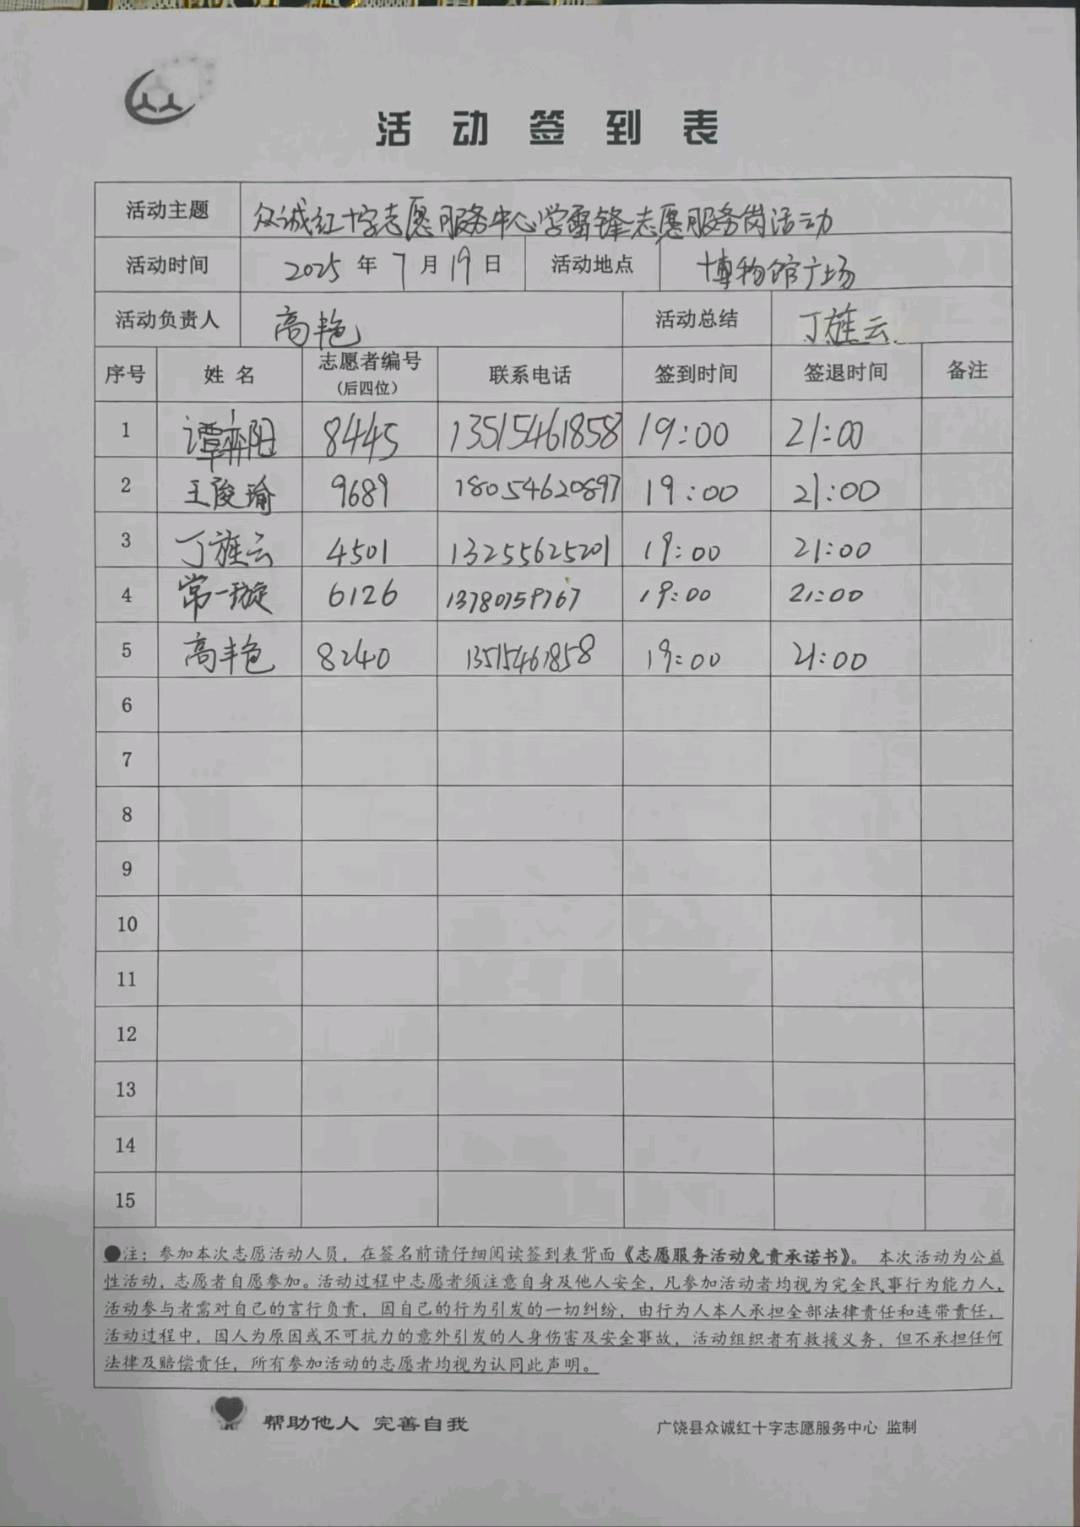 活动签到表
活动主题 众诚红十字志愿服务中心学雷锋志愿服务岗活动
活动时间 2025 年 7 月 19 日 活动地点 博物馆广场
活动负责人 高艳 活动总结 丁旌云
序号 姓名 志愿者编号 联系电话 签到时间 签退时间 备注
(后四位)
1 谭弈阳 8445 13515461858 19:00 21:00
2 王俊瑜 9689 18054620897 19:00 21:00
3 丁旌云 4501 13255625201 19:00 21:00
4 常一璇 6126 13780759767 19:00 21:00
5 高艳 8240 13515461858 19:00 21:00
6
7
8
9
10
11
12
13
14
15
●注：参加本次志愿活动人员，在签名前请仔细阅读签到表背面《志愿服务活动免责承诺书》。 本次活动为公益
性活动，志愿者自愿参加。活动过程中志愿者须注意自身及他人安全，凡参加活动者均视为完全民事行为能力人，
活动参与者需对自己的言行负责，因自己的行为引发的一切纠纷，由行为人本人承担全部法律责任和连带责任，
活动过程中，因人为原因或不可抗力的意外引发的人身伤害及安全事故，活动组织者有救援义务，但不承担任何
法律及赔偿责任，所有参加活动的志愿者均视为认同此声明。
帮助他人 完善自我 广饶县众诚红十字志愿服务中心 监制